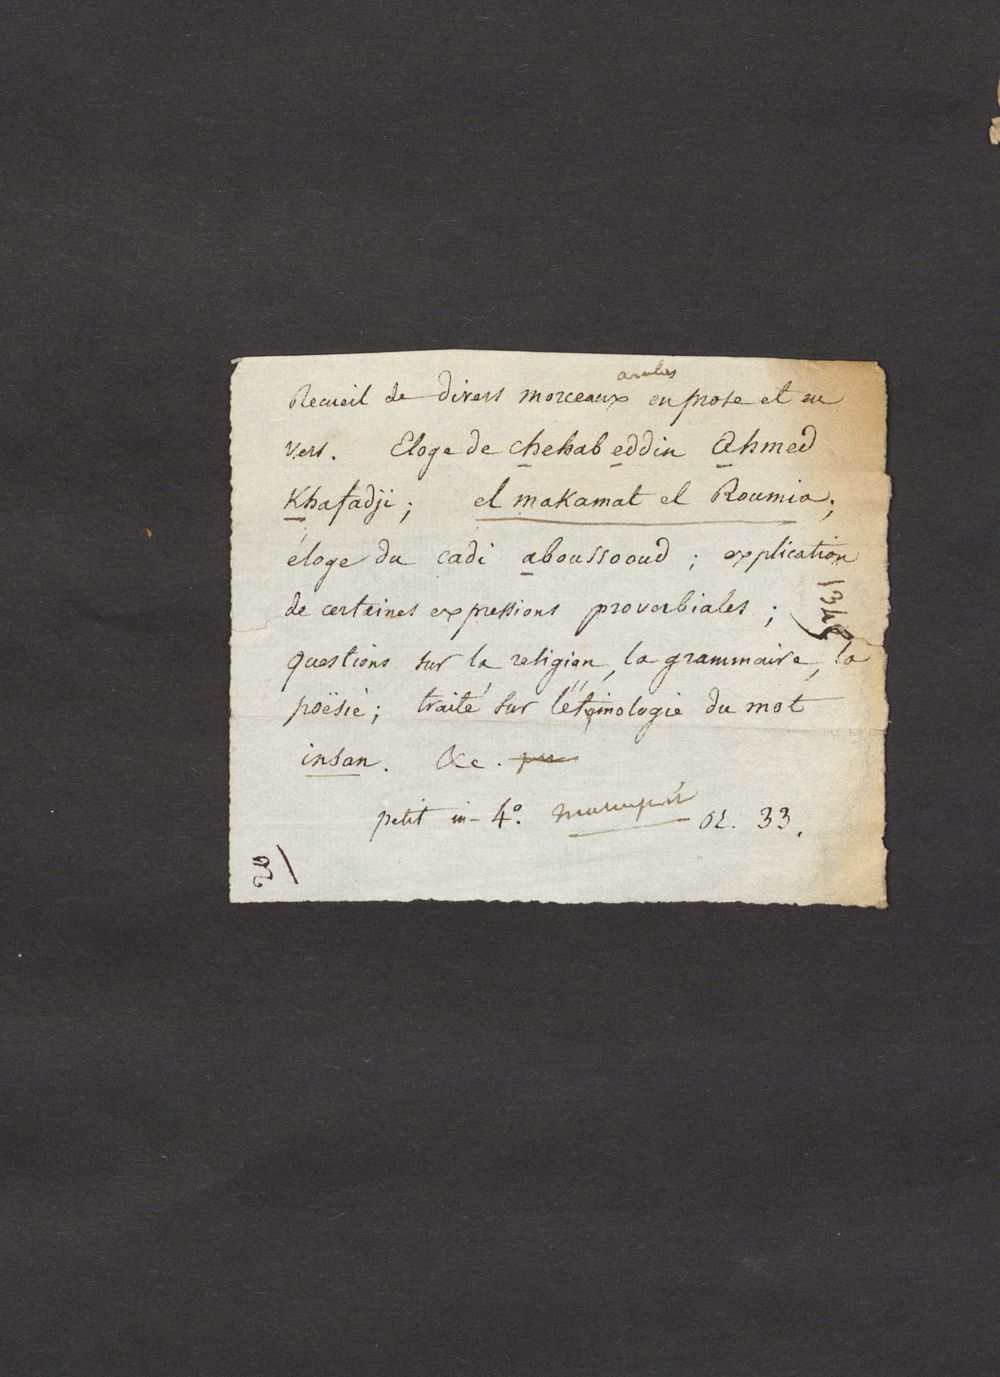 Recueil de divers morceaux arabes en prose et en
vers. Eloge de chehab eddin Ahmed
Khafadji; el makamat el Roumia;
éloge du cadi aboussooud; explication
de certaines expressions proverbiales;
questions sur la religion, la grammaire, la
poësie; traité sur l'étymologie du mot
insan. &c.
petit in-4°. manuscrit or. 33.
1345
20